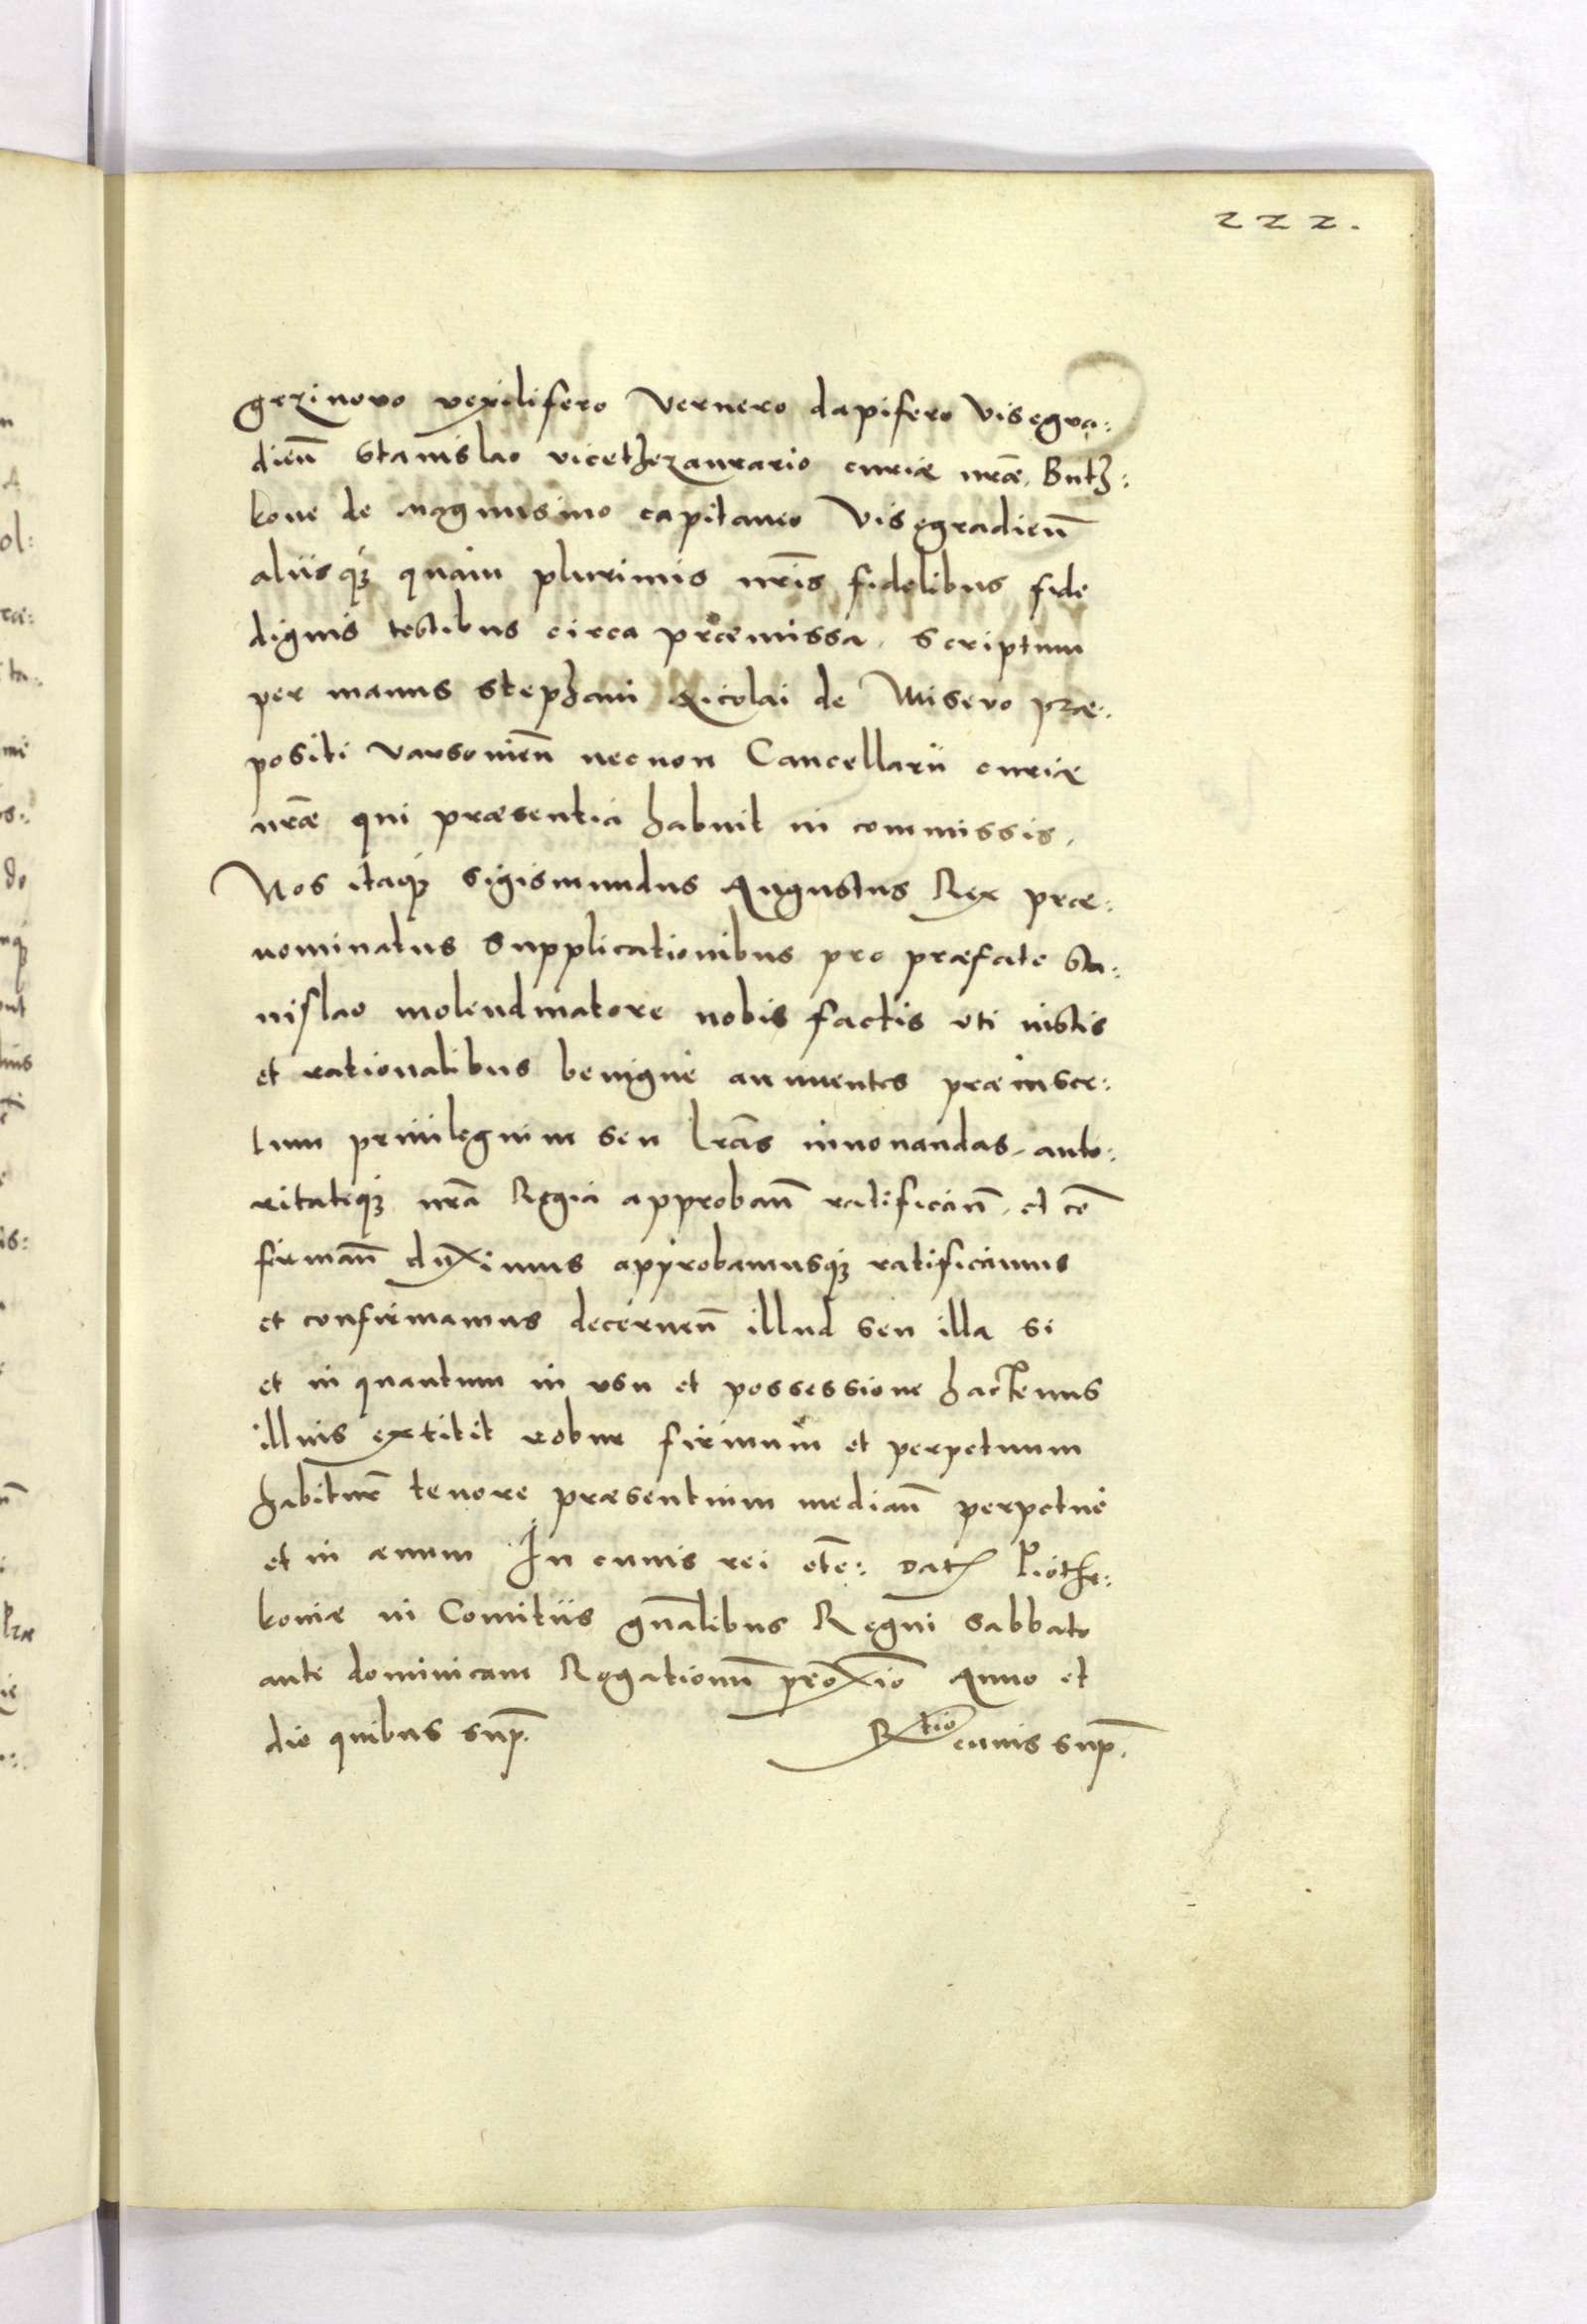 222.
grzinovo vexilifero Vernero dapifero Visegra:
dieñ Stanislao vicethezaurario curiæ nr̃æ. Buth:
kone de Magnusino capitaneo Visegradieñ
aliisq₃ quàm plurimis nr̃is fidelibus fide
dignis testibus circa præmissa. Scriptum
per manus Stephani Nicolai de Misevo præ:
positi Varsovieñ necnon Cancellarii curiæ
nr̃æ qui præsentia habuit in commissis.
Nos itaq₃ Sigismundus Augustus Rex præ:
nominatus supplicationibus pro præfato Sta:
nislao molendinatore nobis factis uti iustis
et rationalibus benignè annuentes præinser:
tum priuilegium seu l̃ras innouandas, auto:
ritateq₃ nr̃a Regia approbañ ratificañ, et cõ
firmañ duximus approbamusq₃ ratificamus
et confirmamus decerneñ illud seu illa si
et in quantum in usu et possessione hactenus
illius extitit robur firmum et perpetuum
habitur̃ tenore præsentium mediañ perpetuè
et in æuum In cuius rei etc̃: Dat̃ Piothr:
koviæ in Comitiis gñalibus Regni Sabbato
ante dominicam Rogationũ proxĩo Anno et
die quibus sup̃.
R̃tio cuius sup̃.